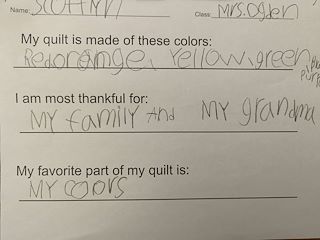 Name: Class: Mrs. Ogden
My quilt is made of these colors:
Red orange, Yellow, green,
I am most thankful for:
MY family And MY grandma
My favorite part of my quilt is:
MY coors